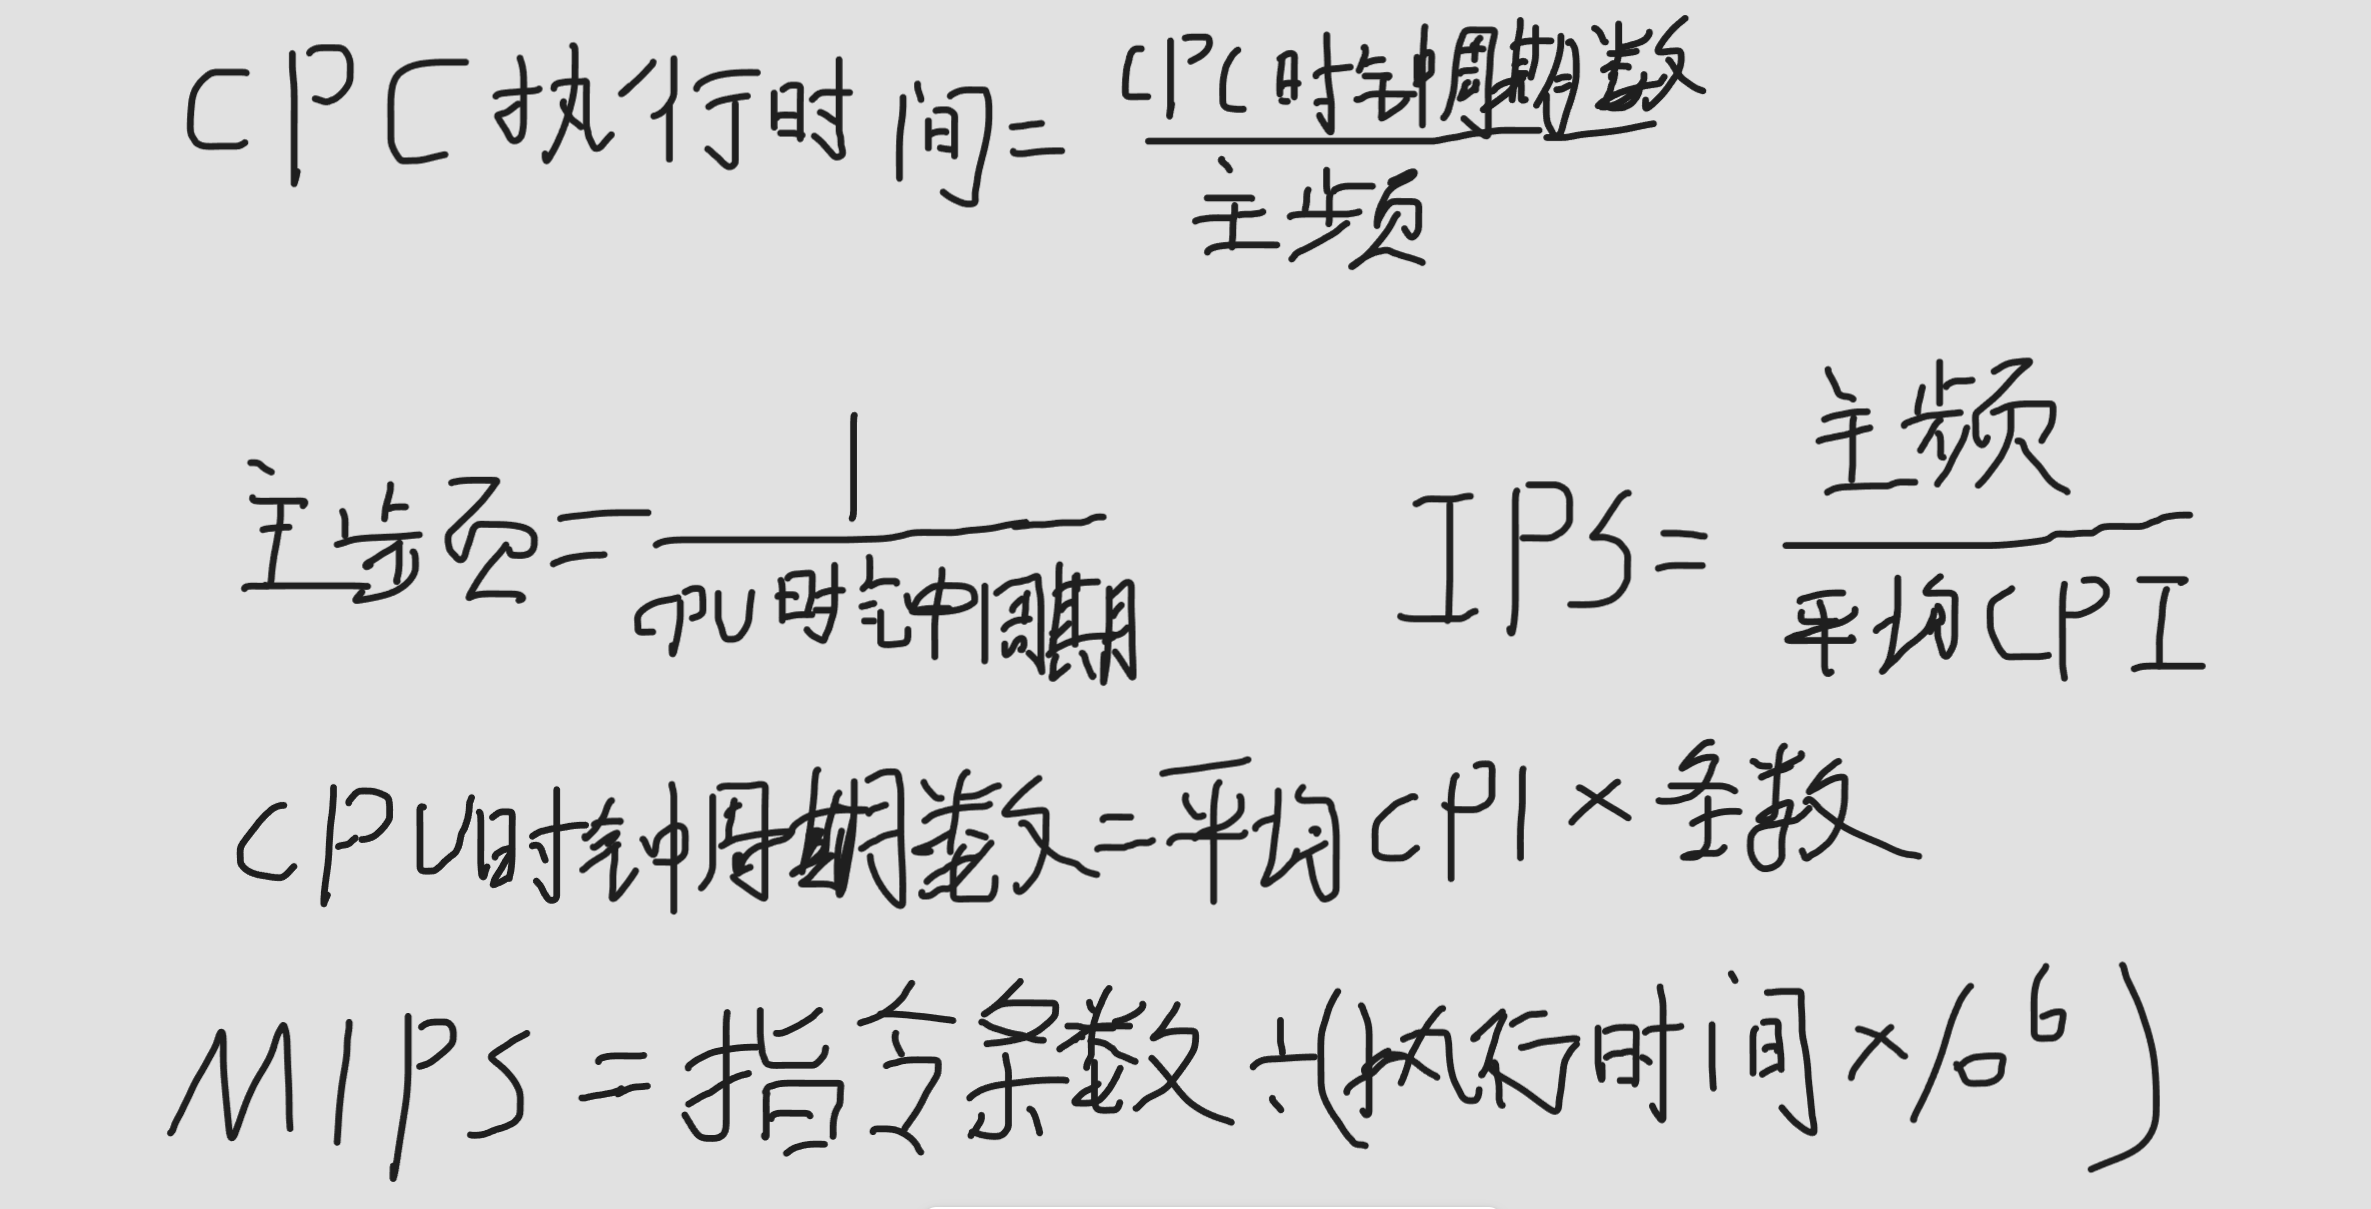 CPC执行时间=CPC时钟周期数/主频
主频=1/CPU时钟周期 IPS=主频/平均CPI
CPU时钟周期数=平均CPI×条数
MIPS=指令条数÷(执行时间×10⁶)